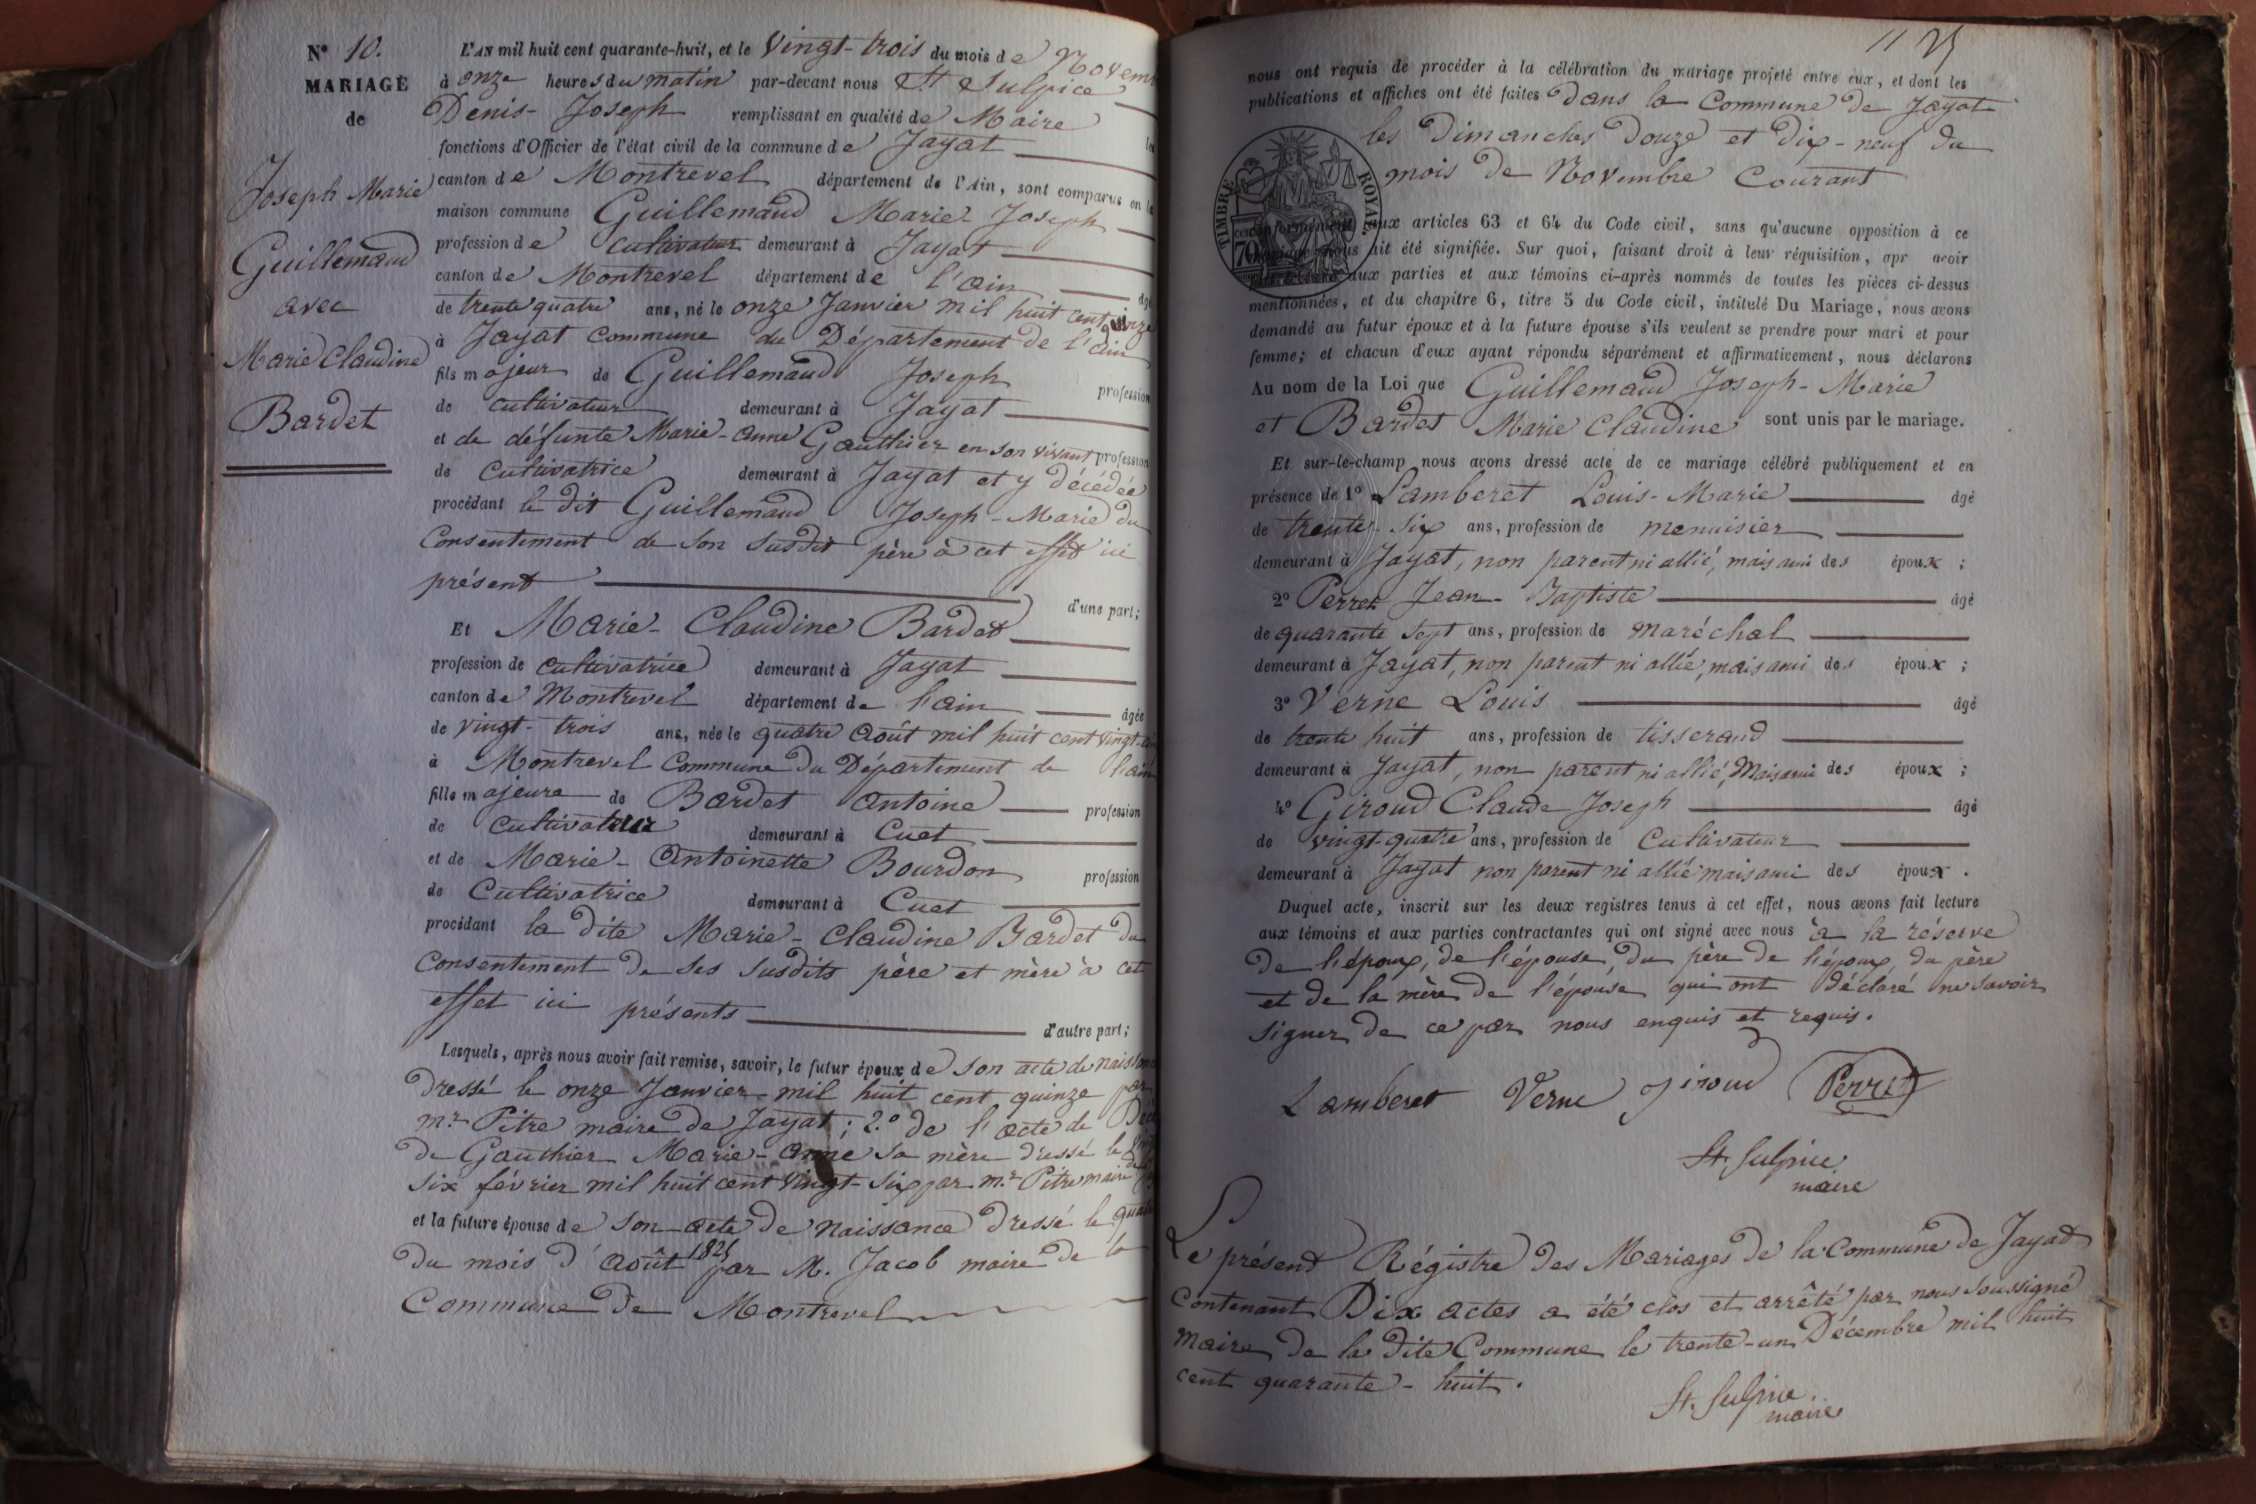 N° 10.
MARIAGE
de
Joseph Marie
Guillemaud
avec
Marie Claudine
Bardet
L'AN mil huit cent quarante-huit, et le Vingt-trois du mois de Novem
à onze heures du matin par-devant nous St Sulpice
Denis-Joseph remplissant en qualité de Maire les
fonctions d'Officier de l'état civil de la commune de Jayat
canton de Montrevel département de l'Ain, sont comparus en la
maison commune Guillemaud Marie Joseph
profession de cultivateur demeurant à Jayat
canton de Montrevel département de l'ain âgé
de trente quatre ans, né le onze Janvier mil huit cent quinze
à Jayat Commune du Département de l'ain
fils majeur de Guillemaud Joseph profession
de cultivateur demeurant à Jayat
et de défunte Marie-anne Gauthier en son vivant profession
de Cultivatrice demeurant à Jayat et y décédée
procédant le dit Guillemaud Joseph-Marie du
Consentement de son susdit père à cet effet ici
présent d'une part;
Et Marie-Claudine Bardet
profession de cultivatrice demeurant à Jayat
canton de Montrevel département de l'ain âgée
de vingt-trois ans, née le quatre août mil huit cent vingt-
à Montrevel Commune du Département de l'ain
fille majeure de Bardet antoine profession
de Cultivateur demeurant à Cuet
et de Marie-Antoinette Bourdon profession
de Cultivatrice demeurant à Cuet
procédant la dite Marie-Claudine Bardet du
Consentement de ses susdits père et mère à cet
effet ici présents d'autre part;
Lesquels, après nous avoir fait remise, savoir, le futur époux de son acte de naissance
dressé le onze Janvier mil huit cent quinze par
mr Pitre maire de Jayat; 2.° de l'acte de Décè
de Gauthier Marie-anne sa mère dressé le
six février mil huit cent vingt-six par mr Pitre maire
et la future épouse de son acte de naissance dressé le quatre
du mois d'août 1825 par M. Jacob maire de la
Commune de Montrevel
11 25
nous ont requis de procéder à la célébration du mariage projeté entre eux, et dont les
publications et affiches ont été faites dans la Commune de Jayat
les Dimanches Douze et Dix-neuf du
mois de Novembre Courant
TIMBRE ROYAL
70
conformément aux articles 63 et 64 du Code civil, sans qu'aucune opposition à ce
mariage nous ait été signifiée. Sur quoi, faisant droit à leur réquisition, apr avoir
aux parties et aux témoins ci-après nommés de toutes les pièces ci-dessus
mentionnées, et du chapitre 6, titre 5 du Code civil, intitulé Du Mariage, nous avons
demandé au futur époux et à la future épouse s'ils veulent se prendre pour mari et pour
femme; et chacun d'eux ayant répondu séparément et affirmativement, nous déclarons
Au nom de la Loi que Guillemaud Joseph-Marie
et Bardet Marie Claudine sont unis par le mariage.
Et sur-le-champ nous avons dressé acte de ce mariage célébré publiquement et en
présence de 1° Lamberet Louis-Marie âgé
de trente-six ans, profession de menuisier
demeurant à Jayat, non parent ni allié, mais ami des époux;
2° Perret Jean-Baptiste âgé
de quarante sept ans, profession de maréchal
demeurant à Jayat, non parent ni allié, mais ami des époux;
3° Verne Louis âgé
de trente huit ans, profession de tisserand
demeurant à Jayat, non parent ni allié, Mais ami des époux;
4° Giroud Claude Joseph âgé
de vingt-quatre ans, profession de Cultivateur
demeurant à Jayat non parent ni allié mais ami des époux.
Duquel acte, inscrit sur les deux registres tenus à cet effet, nous avons fait lecture
aux témoins et aux parties contractantes qui ont signé avec nous à la réserve
de l'époux, de l'épouse, du père de l'époux, du père
et de la mère de l'épouse qui ont déclaré ne savoir
signer de ce par nous enquis et requis.
Lamberet Verne giroud Perret
St. Sulpice
maire
Le présent Régistre des Mariages de la Commune de Jayat
Contenant Dix actes a été clos et arrêté par nous soussigné
Maire de la dite Commune le trente-un Décembre mil huit
cent quarante-huit.
St. Sulpice
maire